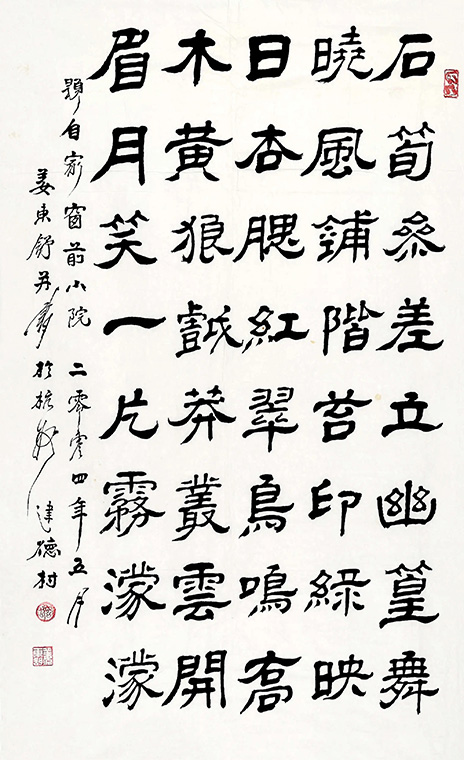 石筍參差立幽篁舞
曉風鋪階苔印綠映
日杏腮紅翠鳥鳴高
木黃狼戲莽叢雲開
眉月笑一片霧濛濛
題自家窗前小院 二零零四年五月
姜東舒并書於杭 建德村